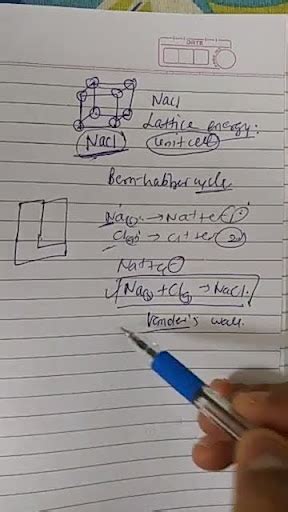 DATE
NaCl
Lattice energy:
NaCl Unit cell
Born-habber cycle
Na(s) → Na+ + e-
Cl(g) → Cl + e
Na+ + Cl-
Na(s) + Cl(g) → NaCl.
Vander's wall.